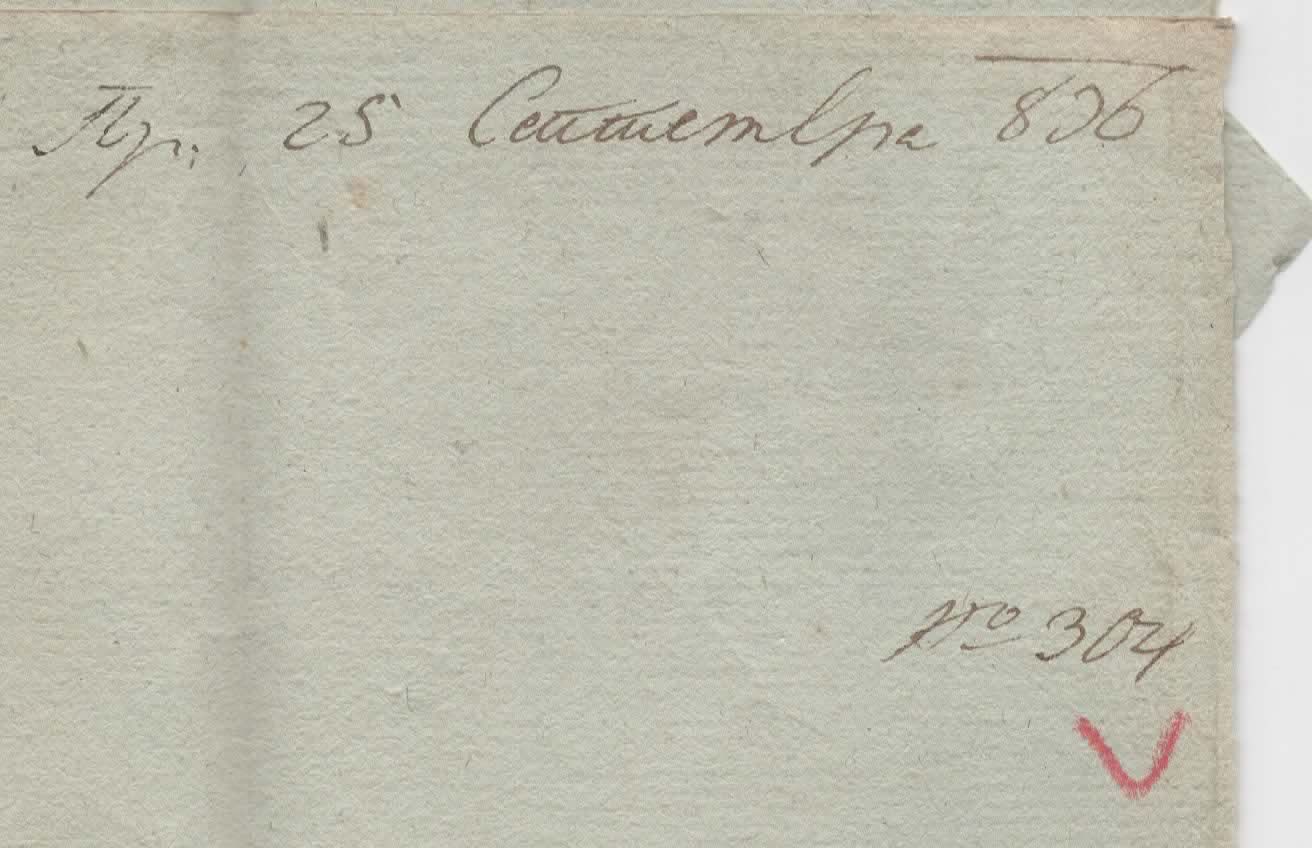 Пр. 25 Сентемвра 836
№ 304